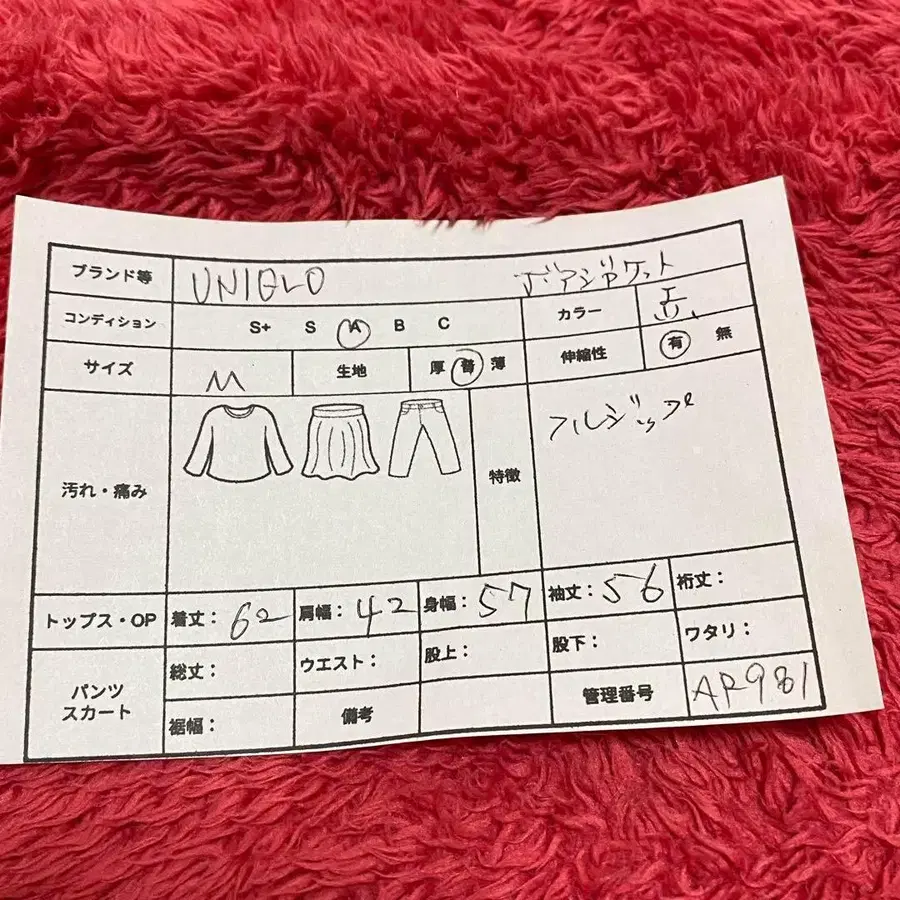 ブランド等 UNIQLO ボアジャケット
コンディション S+ S A B C カラー
サイズ M 生地 厚 普 薄 伸縮性 有 無
汚れ・痛み 特徴 フルジップ
トップス・OP 着丈： 62 肩幅： 42 身幅： 57 袖丈： 56 裄丈：
パンツ スカート 総丈： ウエスト： 股上： 股下： ワタリ：
裾幅： 備考 管理番号